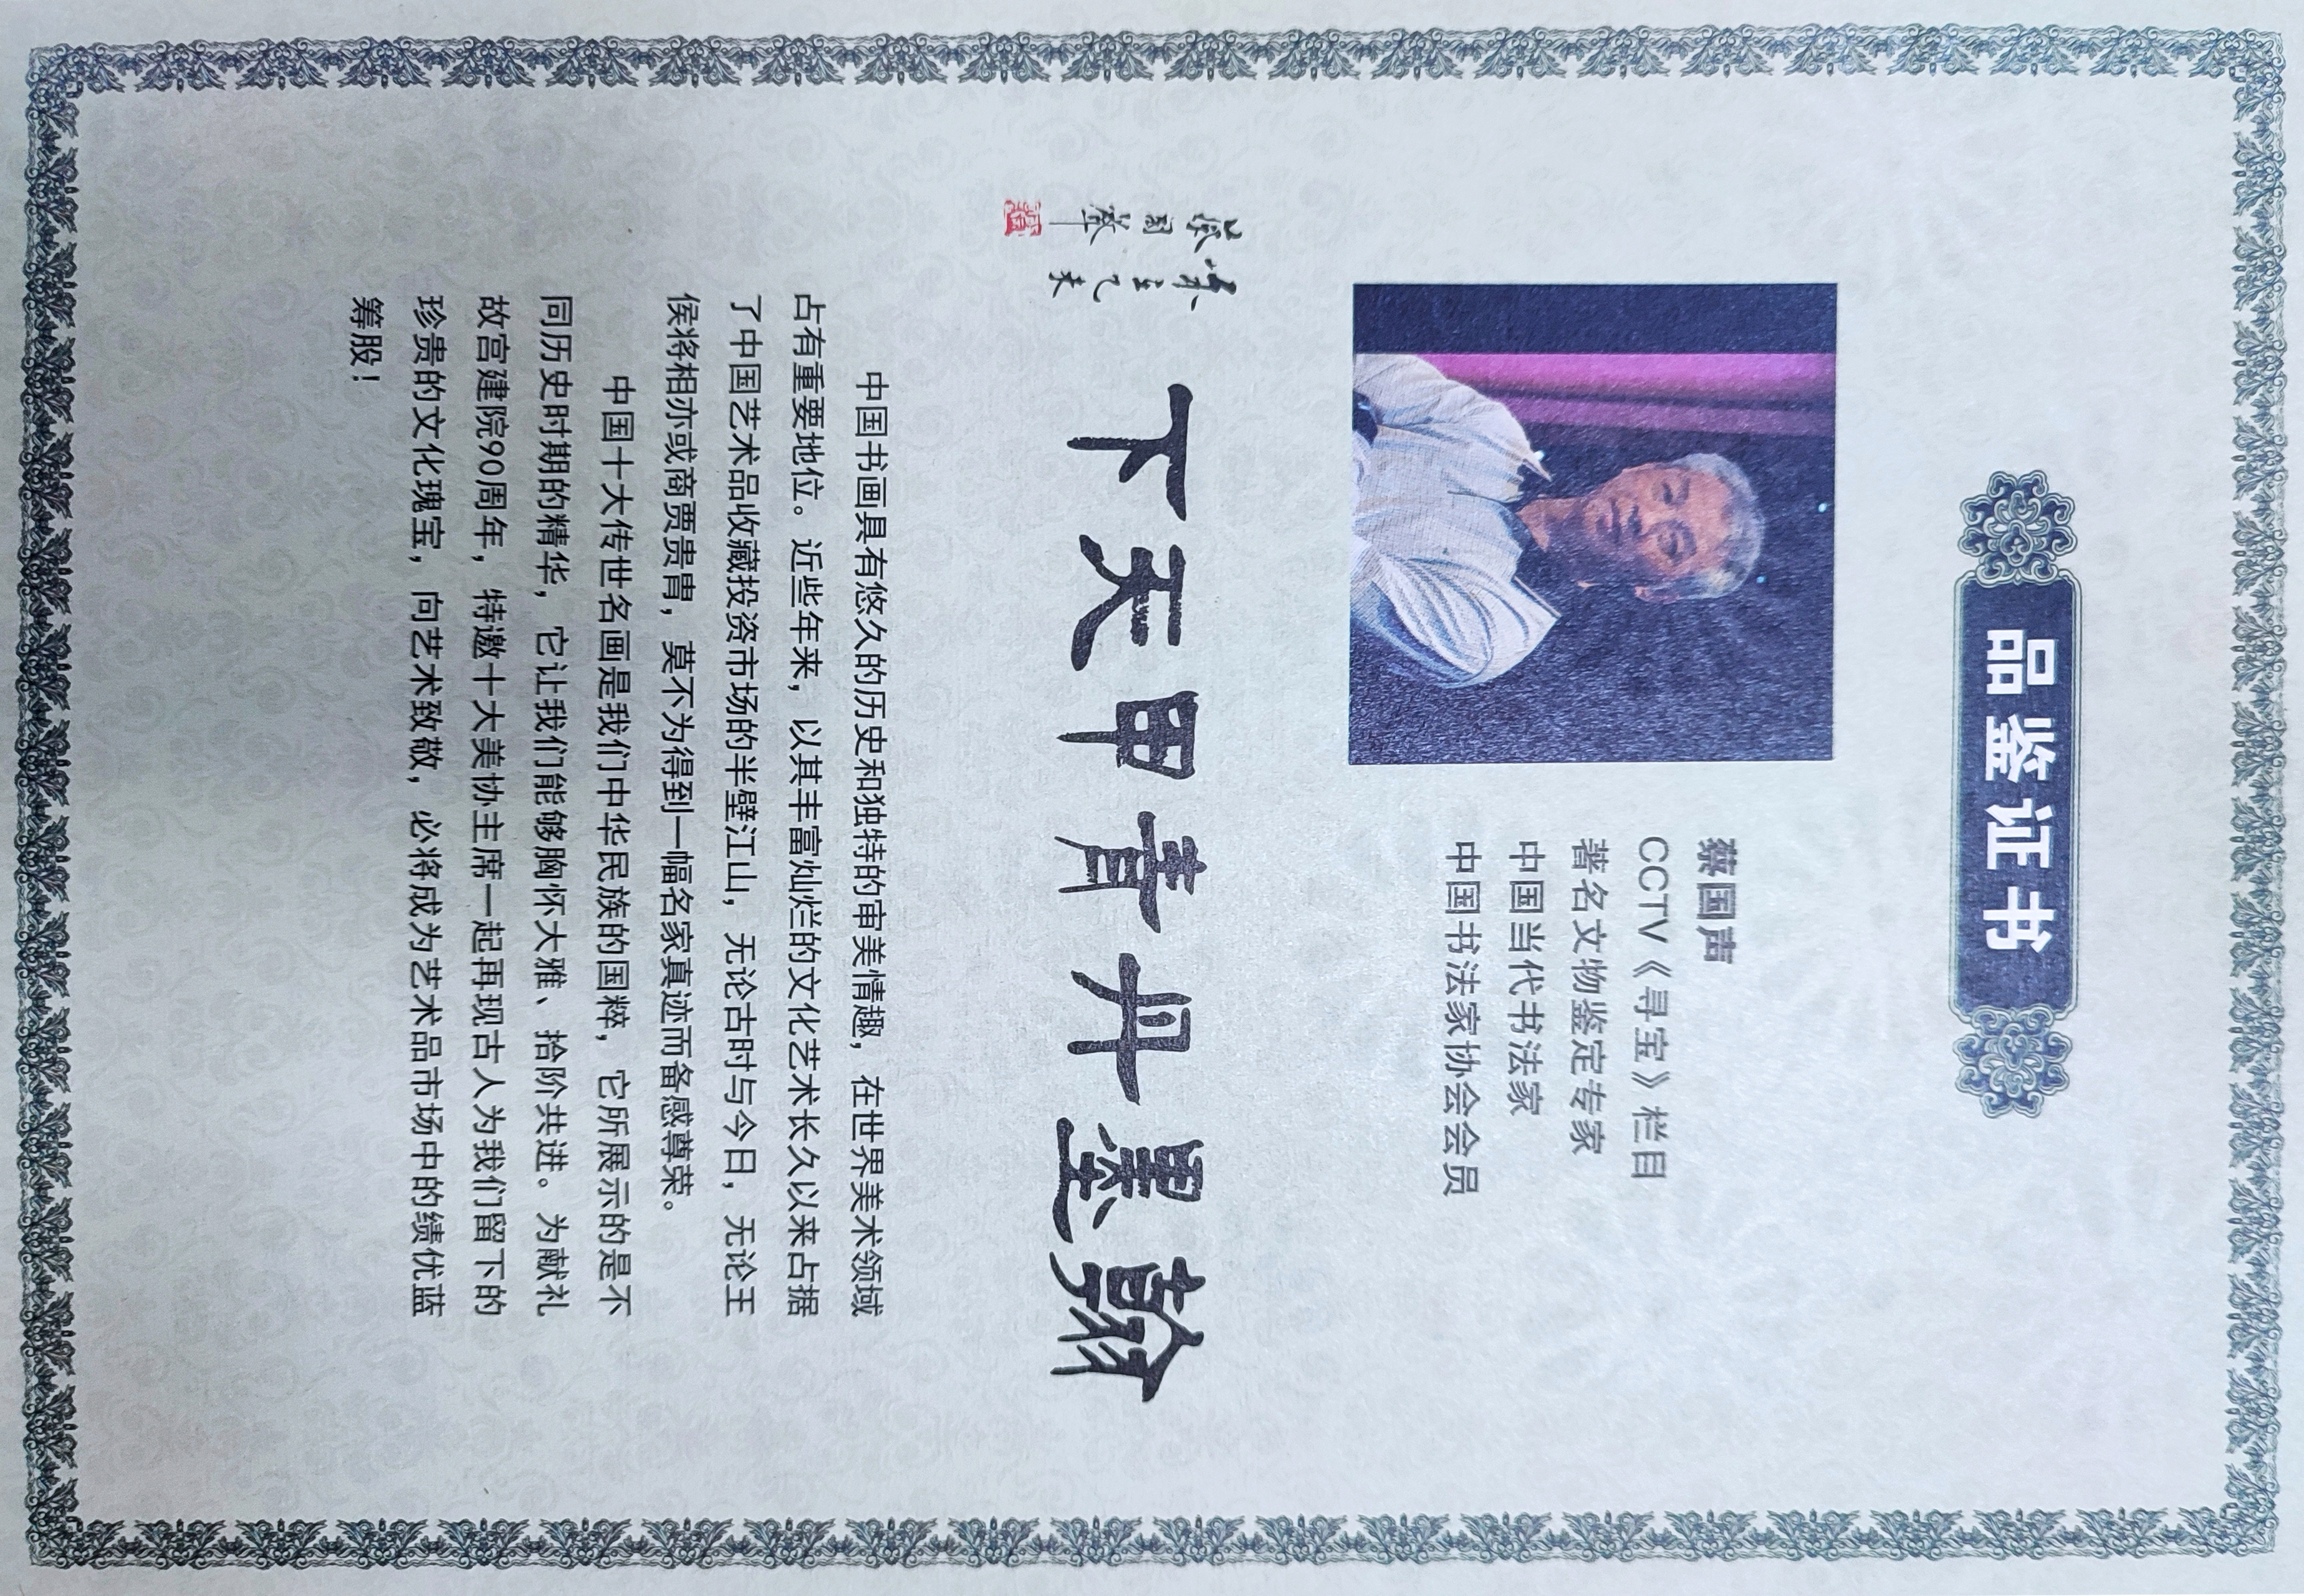 品鉴证书
蔡国声
CCTV《寻宝》栏目
著名文物鉴定专家
中国当代书法家
中国书法家协会会员
翰墨丹青甲天下
乙未
蔡国聲
中国书画具有悠久的历史和独特的审美情趣，在世界美术领域
占有重要地位。近些年来，以其丰富灿烂的文化艺术长久以来占据
了中国艺术品收藏投资市场的半壁江山，无论古时与今日，无论王
侯将相亦或商贾贵胄，莫不为得到一幅名家真迹而备感尊荣。
中国十大传世名画是我们中华民族的国粹，它所展示的是不
同历史时期的精华，它让我们能够胸怀大雅、拾阶共进。为献礼
故宫建院90周年，特邀十大美协主席一起再现古人为我们留下的
珍贵的文化瑰宝，向艺术致敬，必将成为艺术品市场中的绩优蓝
筹股！